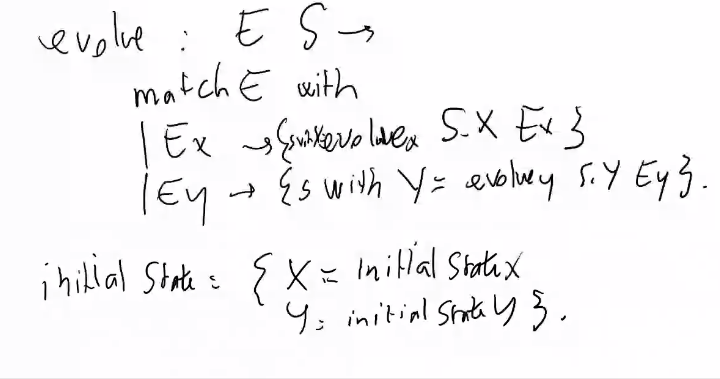 evolve : E S →
match E with
| Ex → {s with X = evolvex S.X Ex}
| Ey → {s with Y = evolvey S.Y Ey}.
initial State = { X = Initial StateX
Y = initial State Y }.